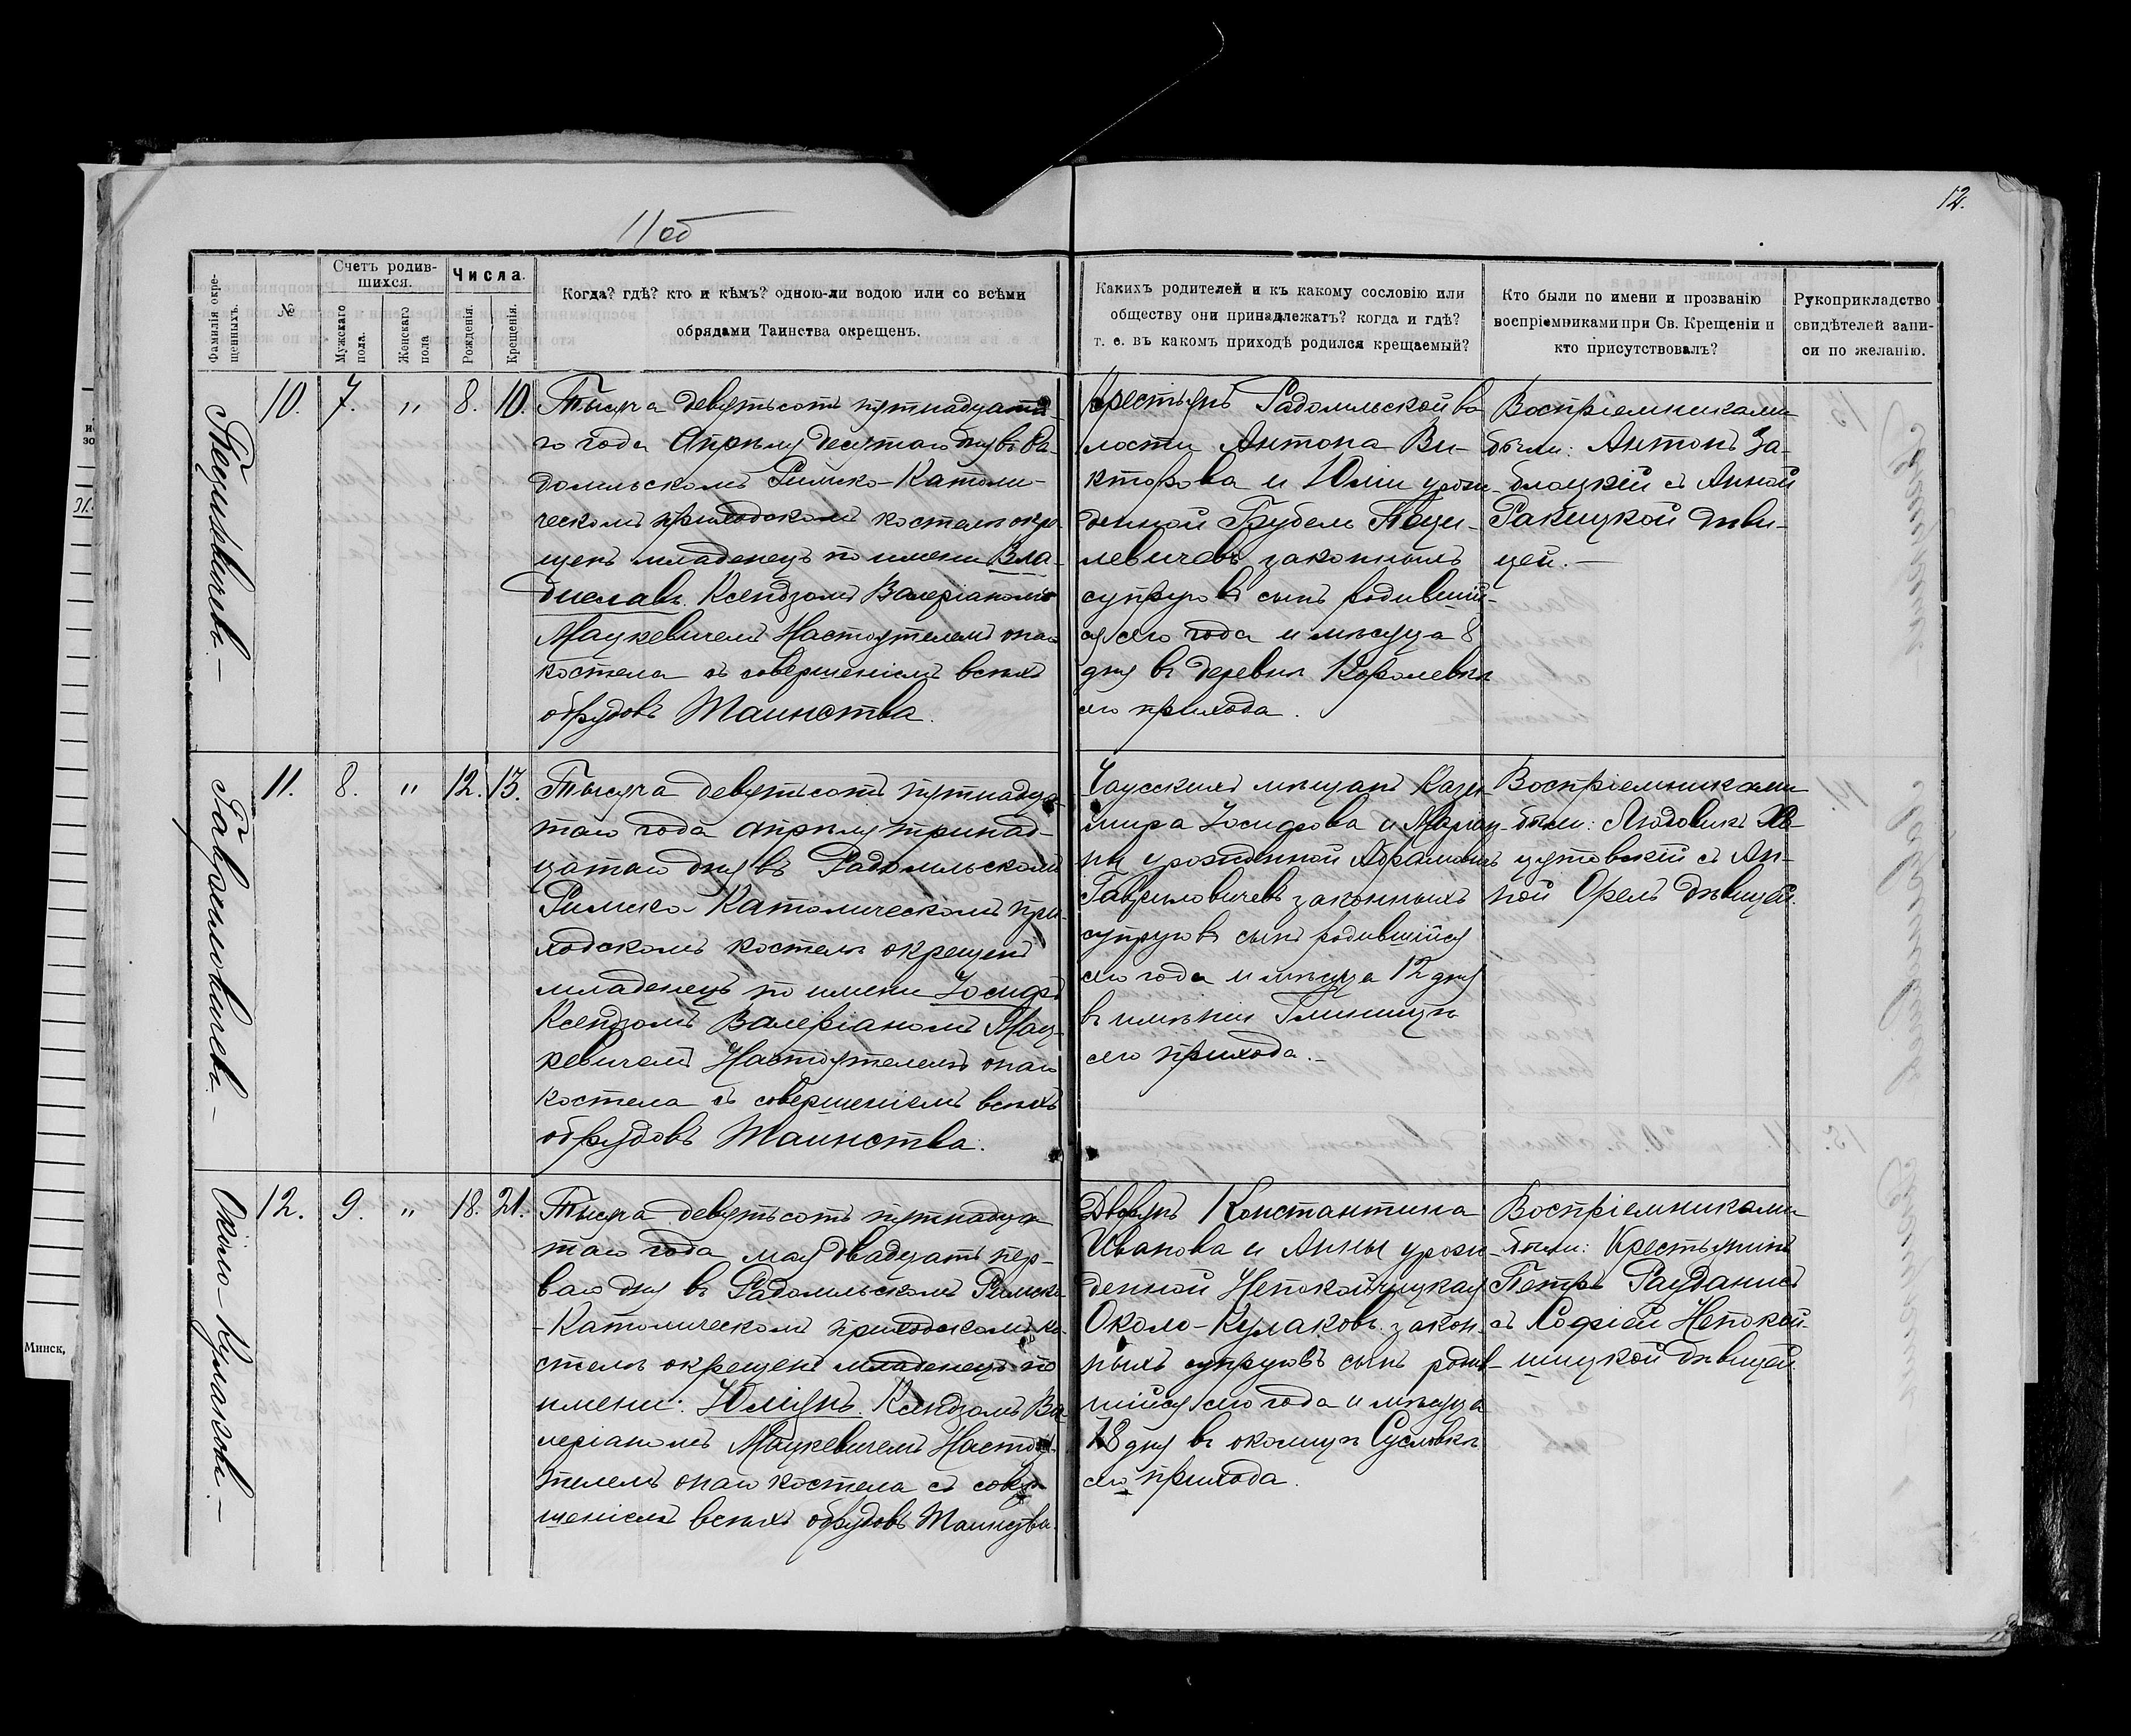 11 об
12.
Фамилія окре-
щенныхъ.
№
Счетъ родив-
шихся.
Мужскаго
пола.
Женскаго
пола
Числа.
Рожденія.
Крещенія.
Когда? гдѣ? кто и кѣмъ? одною-ли водою или со всѣми
обрядами Таинства окрещенъ.
Какихъ родителей и къ какому сословію или
обществу они принадлежатъ? когда и гдѣ?
т. е. въ какомъ приходѣ родился крещаемый?
Кто были по имени и прозванію
воспріемниками при Св. Крещеніи и
кто присутствовалъ?
Рукоприкладство
свидѣтелей запи-
си по желанію.
10. 7. „ 8. 10.
Тысяча девятьсотъ пятнадцата-
го года Апрѣля десятаго дня въ Ра-
домльскомъ Римско-Католи-
ческомъ приходскомъ костелѣ окре-
щенъ младенецъ по имени Вла-
диславъ. Ксендзомъ Валеріаномъ
Мацкевичемъ Настоятелемъ онаго
костела съ совершеніемъ всѣхъ
обрядовъ Таинства.
Крестьянъ Радомльской во
лости Антона Ви-
кторова и Юліи урож-
денной Грубель
левичевъ законныхъ
супруговъ сынъ родивший-
ся сего года и мѣсяца 8
дня въ деревнѣ Королевкѣ
сего прихода.
Воспріемниками
были: Антонъ За-
блоцкій съ Анной
Ракицкой дѣви-
цей.—
Гавриловичевъ.—
11. 8. „ 12. 13.
Тысяча девятьсотъ пятнадца-
таго года апрѣля тринад-
цатаго дня въ Радомльскомъ
Римско-Католическомъ при-
ходскомъ костелѣ окрещенъ
младенецъ по имени Іосифъ
Ксендзомъ Валеріаномъ Мац-
кевичемъ Настоятелемъ онаго
костела съ совершеніемъ всѣхъ
обрядовъ Таинства.
Чаусскихъ мѣщанъ Кази-
мира Іосифова и Марьян-
ны урожденной Абрамовичъ
Гавриловичевъ законныхъ
супруговъ сынъ родившійся
сего года и мѣсяца 12 дня
въ имѣніи Глинищѣ
сего прихода.—
Воспріемниками
были: Людовикъ
съ Ан-
ной Орель дѣвицей.
Около-Кулаковъ.—
12. 9. „ 18. 21.
Тысяча девятьсотъ пятнадца
таго года мая двадцать пер-
ваго дня въ Радомльскомъ Римско-
-Католическомъ приходскомъ ко-
стелѣ окрещенъ младенецъ по
имени: Юліянъ. Ксендзомъ Ва-
леріаномъ Мацкевичемъ Настоя-
телемъ онаго костела съ совер-
шеніемъ всѣхъ обрядовъ Таинства.
Дворянъ Константина
Иванова и Анны урож-
денной Непокойчицкая
Около-Кулаковъ закон-
ныхъ супруговъ сынъ родив-
шійся сего года и мѣсяца
18 дня въ околицѣ Сусловкѣ
сего прихода.
Воспріемниками
были: Крестьянинъ
Петръ Раудлнисъ
съ Софіей Непокой-
чицкой дѣвицей.
Минск,